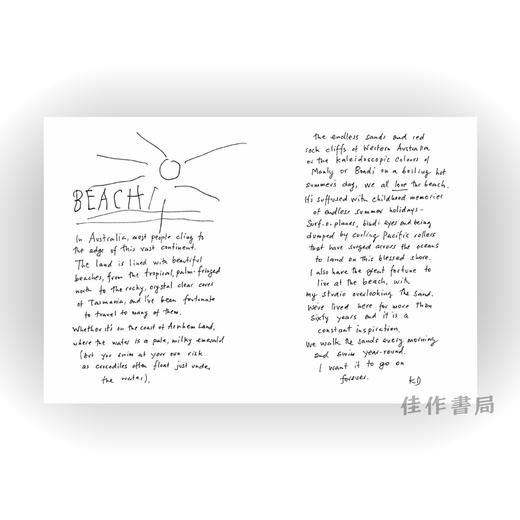 BEACH
In Australia, most people cling to
the edge of this vast continent.
The land is lined with beautiful
beaches, from the tropical, palm-fringed
north to the rocky, crystal clear coves
of Tasmania, and I've been fortunate
to travel to many of them.
Whether it's on the coast of Arnhem Land,
where the water is a pale, milky emerald
(but you swim at your own risk
as crocodiles often float just under
the water),
the endless sands and red
rock cliffs of Western Australia
or the kaleidoscopic colours of
Manly or Bondi on a boiling hot
summer's day, we all love the beach.
suffused with childhood memories
of endless summer holidays-
Surf-o-planes, bindi eyes and being
dumped by curling Pacific rollers
that have surged across the oceans
to land on this blessed shore.
I also have the great fortune to
live at the beach, with
my studio overlooking the sand.
We've lived here for more than
sixty years and it is a
constant inspiration.
We walk the sands every morning
and swim year-round.
I want it to go on
forever.
KD
佳作書局